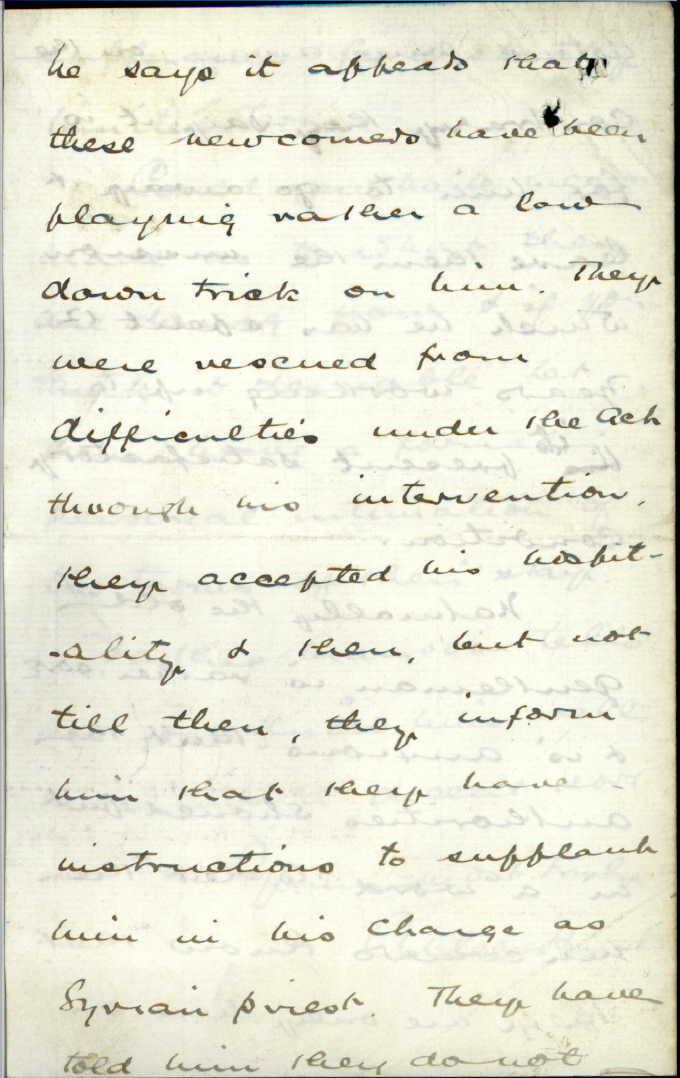 he says it appears that
these newcomers have been
playing rather a low
down trick on him. They
were rescued from
difficulties under the Act
through his intervention,
they accepted his hospit-
-ality & then, but not
till then, they inform
him that they have
instructions to supplant
him in his charge as
Syrian priest. They have
told him they do not